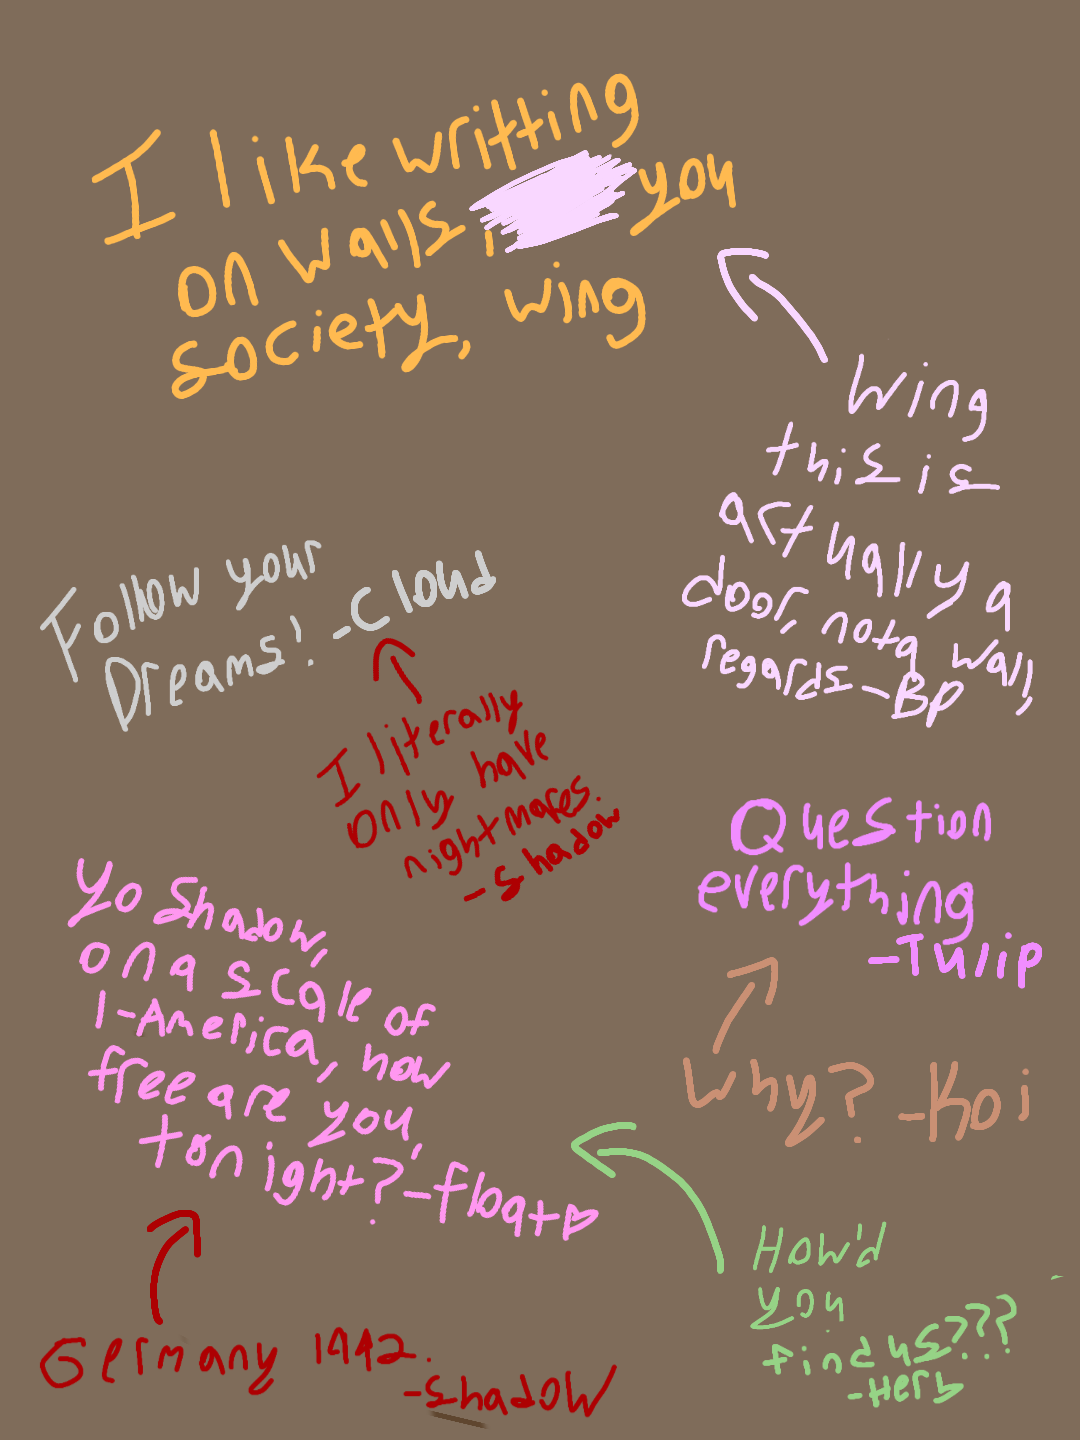 I like writting
on walls, you
society, wing
Wing
this is
actually a
door, not a wall,
regards -BP
Follow your
Dreams! -Cloud
I literally
only have
nightmares.
-Shadow
Question
everything
-Tulip
Why? -Koi
Yo Shadow,
on a scale of
1-America, how
free are you,
tonight? -float
How'd
you
find us???
-Herb
Germany 1942.
-Shadow